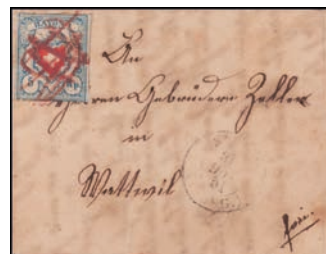 RAYON I
An
Herren Gebrüdern Zeller
in
Wattwil